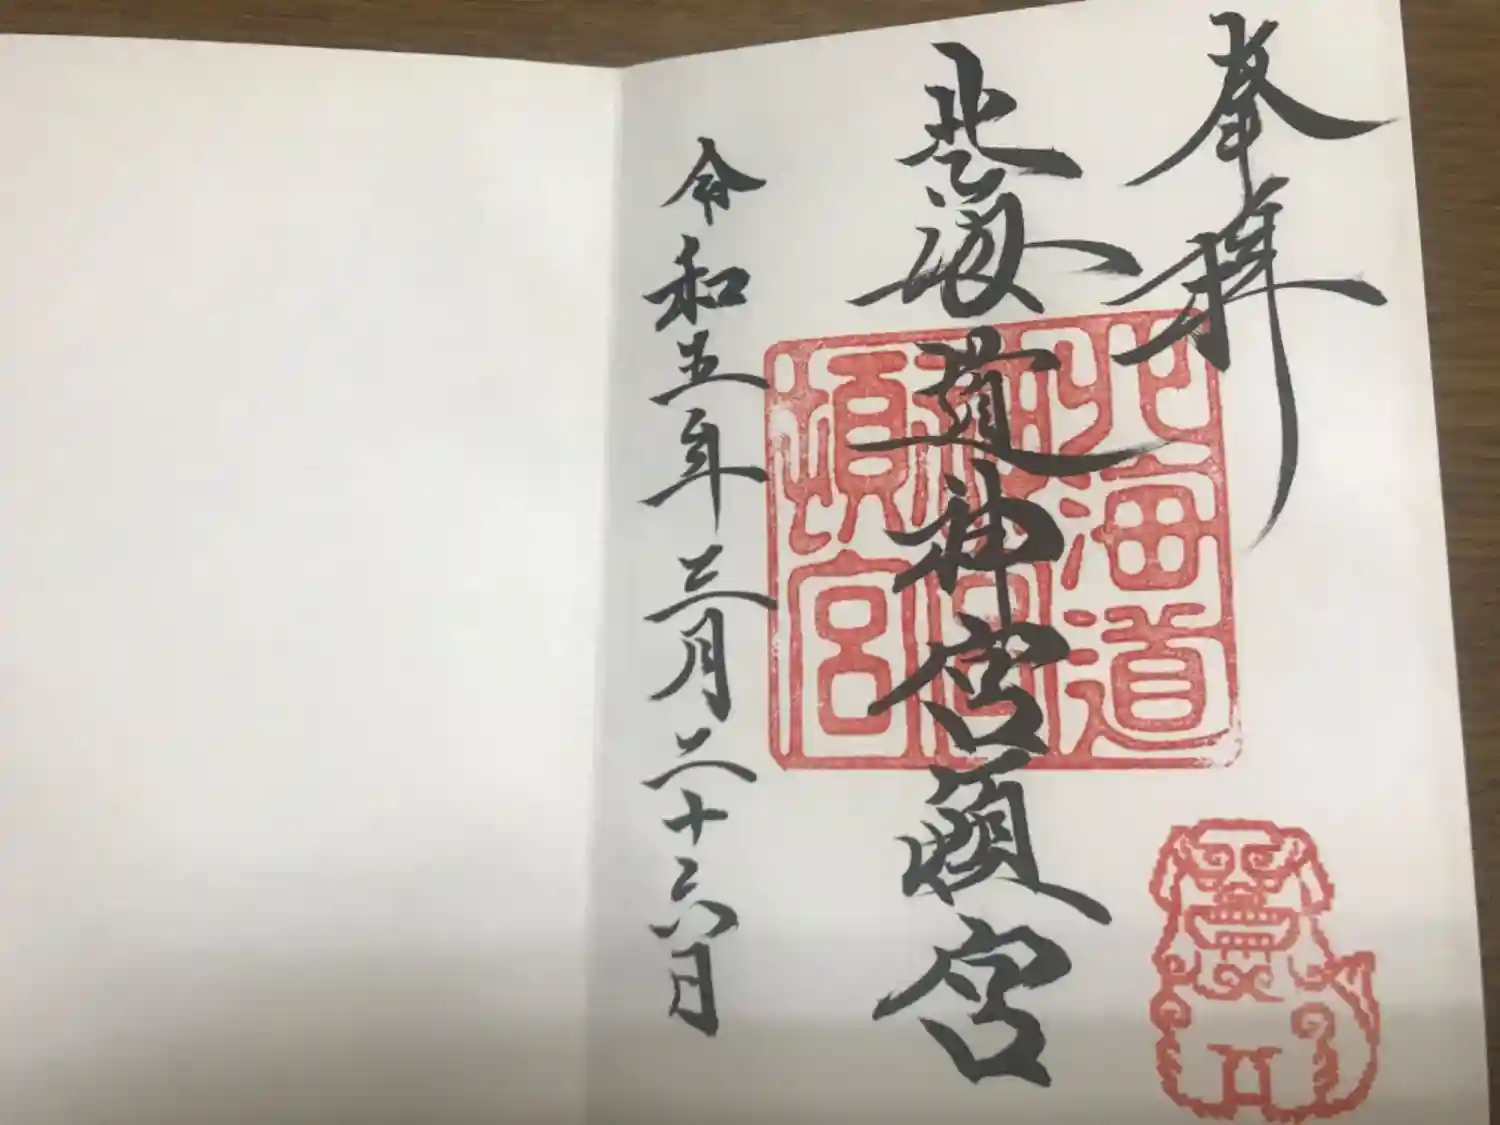 奉拝
北海道神宮頓宮
北海道
神宮
頓宮
令和五年三月二十六日